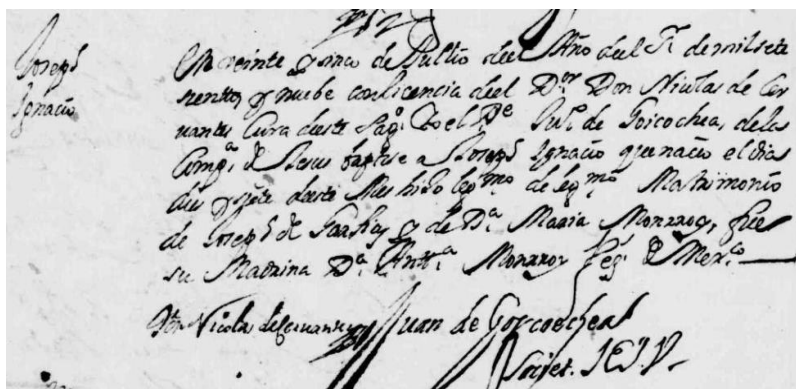 Joseph
Ignacio
En veinte y sinco de Jullio deel Año deel Sr. de mil sete
sientos, y nuebe con licencia deel Dor. Don Nicolas de Cer
uantes Cura deste Sagro. Yo el Pe. Jun. de Goicochea, dela
Compa. de Jesus baptise a Joseph Ignacio que nacio el dia
dies y siete deste Mes hijo legmo. de legmo. Matrimonio
de Joseph de y de Da. Maria Monrroy, fue
su Madrina Da. Anta. Monrroy de Mexco.
Dor. Nicolas de Ceruantes Juan de Goycoechea
Societ. IESV